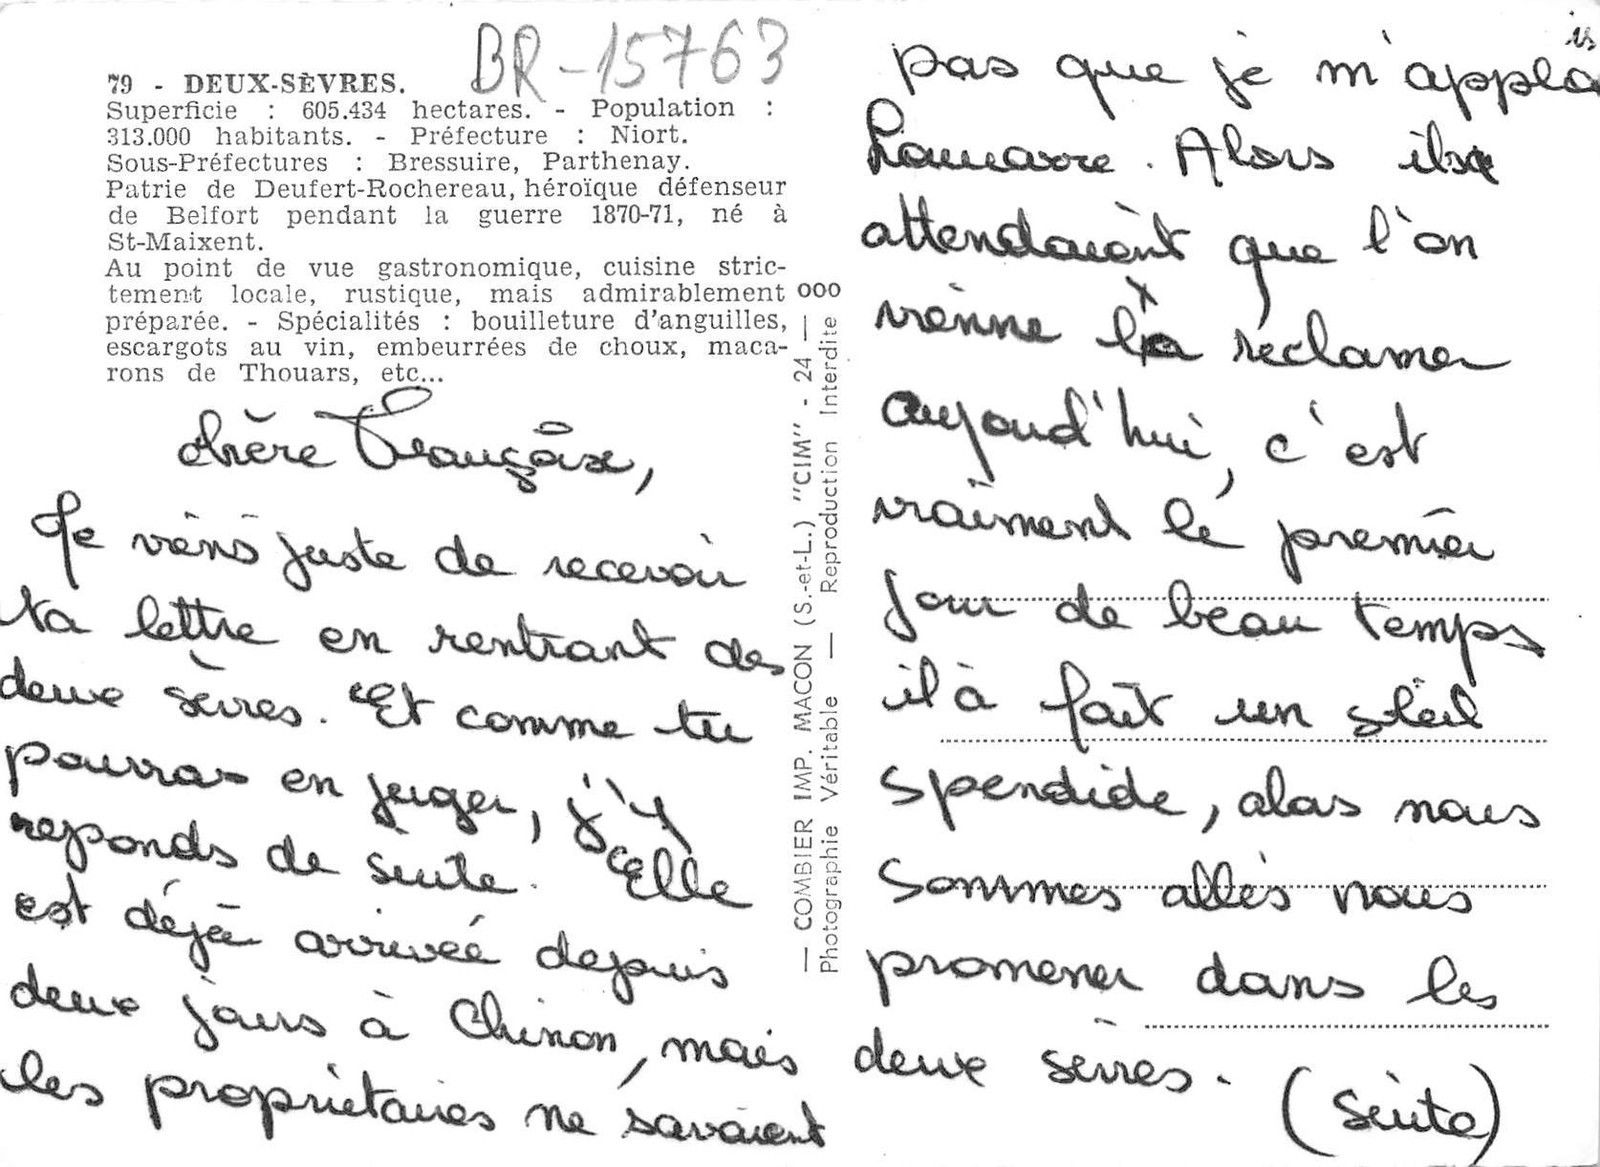 BR-15763
79 - DEUX-SÈVRES.
Superficie : 605.434 hectares. - Population :
313.000 habitants. - Préfecture : Niort.
Sous-Préfectures : Bressuire, Parthenay.
Patrie de Deufert-Rochereau, héroïque défenseur
de Belfort pendant la guerre 1870-71, né à
St-Maixent.
Au point de vue gastronomique, cuisine stric-
tement locale, rustique, mais admirablement
préparée. - Spécialités : bouilleture d'anguilles,
escargots au vin, embeurrées de choux, maca-
rons de Thouars, etc...
chère Françoise,
Je viens juste de recevoir
ta lettre en rentrant des
deux sèvres. Et comme tu
pourras en juger, j'y
reponds de suite. Elle
est déjà arrivée depuis
deux jours à Chinon, mais
les propriétaires ne savaient
ooo
— COMBIER IMP. MACON (S.-et-L.) "CIM" - 24 —
Photographie Véritable — Reproduction Interdite
pas que je m'applais
. Alors ils
attendaient que l'on
vienne la réclamer
aujourd'hui, c'est
vraiment le premier
jour de beau temps
il à fait un soleil
spendide, alos nous
sommes allés nous
promener dans les
deux sèvres.
(suite)